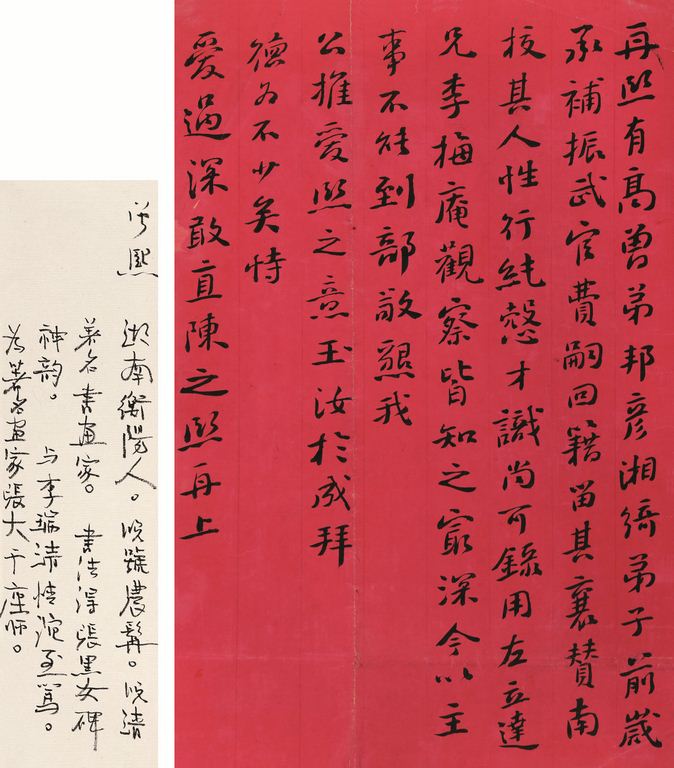 再熙有高曾弟邦彥湘綺弟子前歲
承補振武官費嗣回籍留其襄贊南
校其人性行純愨才識尚可錄用左立達
兄李梅庵觀察皆知之最深今以主
事不能到部敬懇我
公推愛熙之意玉汝於成拜
德為不少矣恃
愛過深敢直陳之熙再上
曾熙 湖南衡陽人。晚號農髯。晚清
著名書畫家。 書法得張黑女碑
神韵。 与李瑞清情谊至篤。
為著名畫家張大千座師。